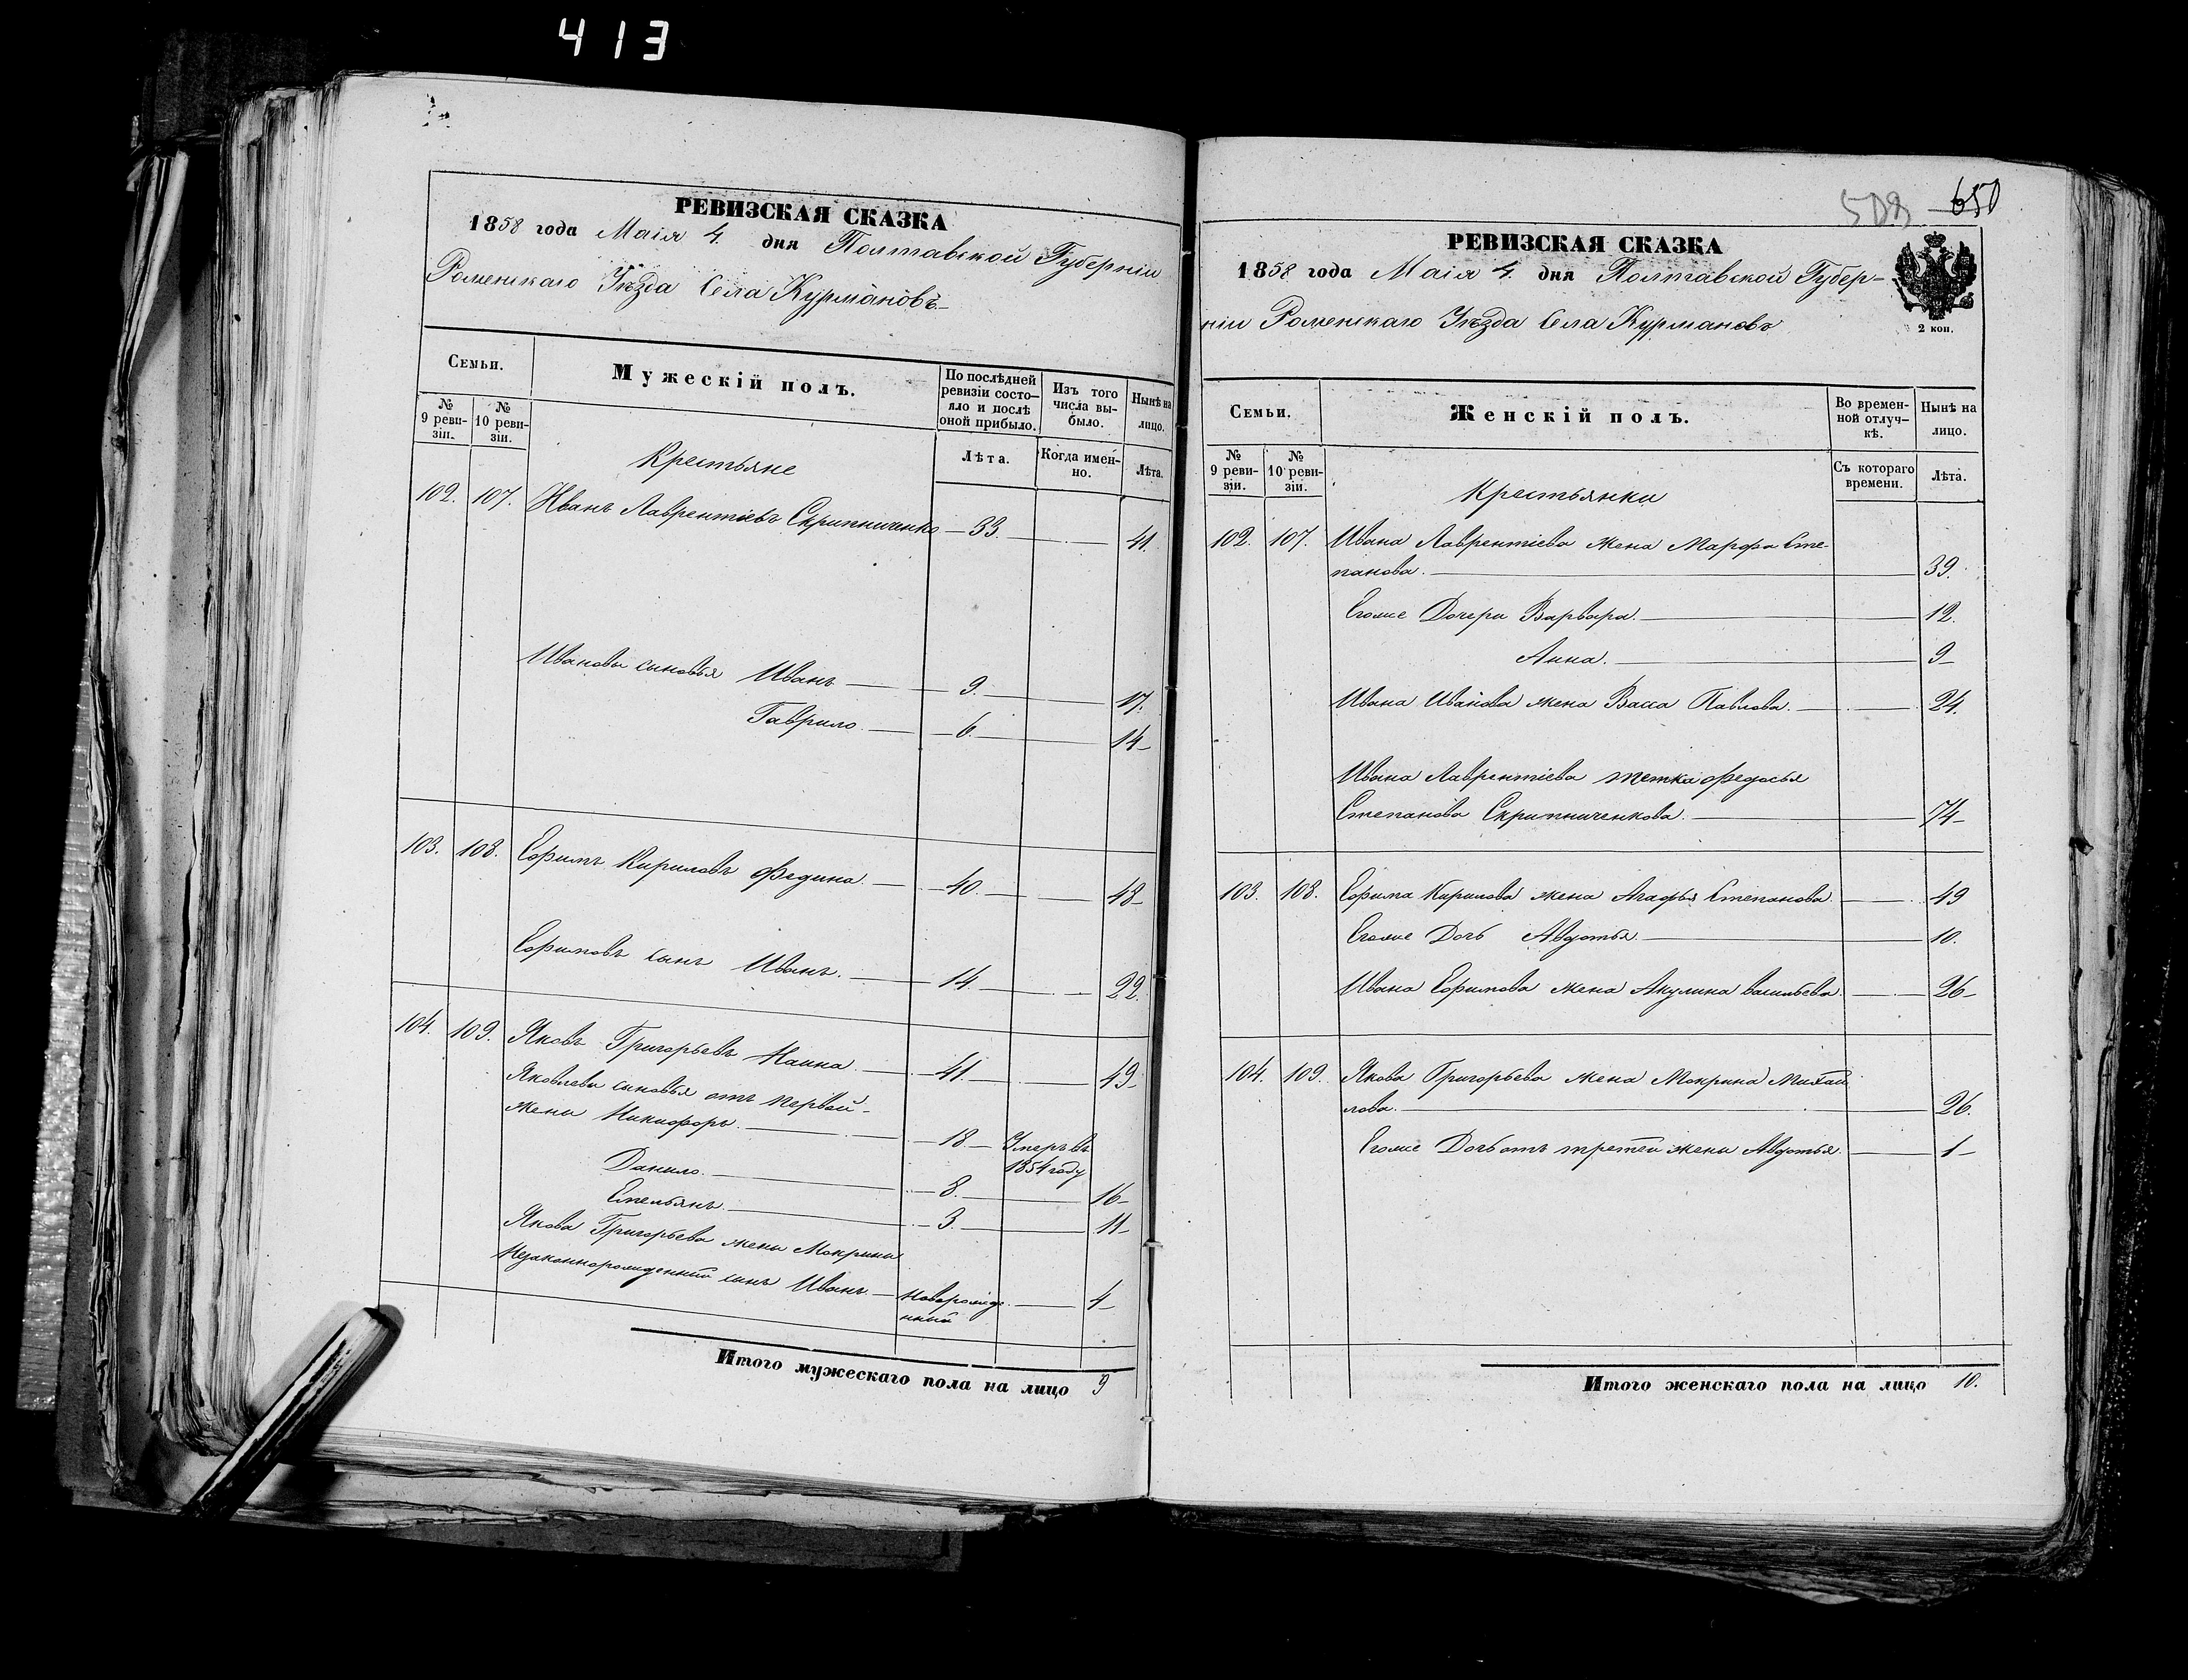 413
РЕВИЗСКАЯ СКАЗКА
1858 года Маія 4. дня Полтавской Губерніи
Роменскаго Уѣзда Села Курмановъ
Семьи.
Мужескій полъ.
По послѣдней ревизіи состояло и послѣ оной прибыло.
Изъ того числа выбыло.
Нынѣ на лицо.
№ 9 ревизіи.
№ 10 ревизіи.
Лѣта.
Когда именно.
Лѣта.
Крестьяне
102. 107. Иванъ Лаврентіевъ Скрипниченко — 33. — 41.
Ивановы сыновья Иванъ — 9. — 17.
Гаврило — 6. — 14
103. 108. Ефимъ Кириловъ Федина — 40. — 48
Ефимовъ сынъ Иванъ. — 14. — 22.
104. 109. Яковъ Григорьевъ — 41. — 49
Яковлевы сыновья отъ первой
жены Никифоръ. — 18 — Умеръ въ
1854 году
Данило. — 8. — 16
Емельянъ. — 3. — 11
Якова Григорьева жены Мокрины
Незаконнорожденный сынъ Иванъ — новорожде
нный — 4
Итого мужескаго пола на лицо 9
650
РЕВИЗСКАЯ СКАЗКА
1858 года Маія 4. дня Полтавской Губер-
ніи Роменскаго Уѣзда Села Курмановъ
2 коп.
Семьи.
Женскій полъ.
Во временной отлучкѣ.
Нынѣ на лицо.
№ 9 ревизіи.
№ 10 ревизіи.
Съ котораго времени.
Лѣта.
Крестьянки
102. 107. Ивана Лаврентіева жена Марфа Сте-
панова. — 39.
Егоже Дочери Варвара. — 12.
Анна. — 9
Ивана Иванова жена Васса Павлова. — 24.
Ивана Лаврентіева тетка Федосья
Степанова Скрипниченкова. — 74
103. 108. Ефима Кирилова жена Агафья Степанова. — 49
Егоже Дочь Авдотья. — 10.
Ивана Ефимова жена Акулина Васильева. — 26
104. 109. Якова Григорьева жена Мокрина Михаи
лова. — 26.
Егоже Дочь отъ третей жены Авдотья. — 1
Итого женскаго пола на лицо 10.